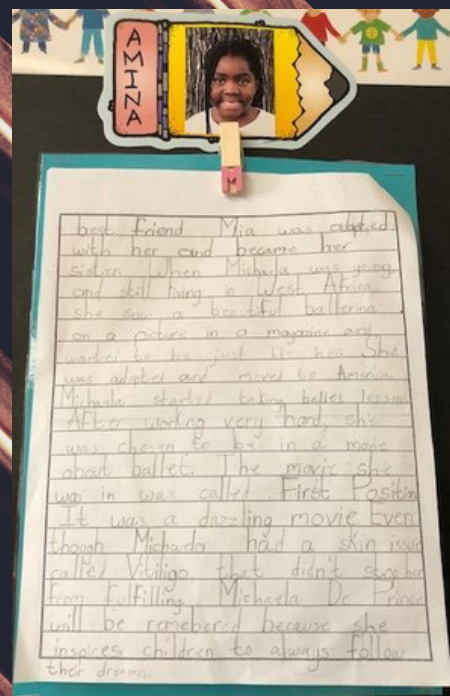 AMINA
M
best friend Mia was adopted
with her and became her
sister. When Michaela was young,
and still living in West Africa
she saw a beautiful ballerina
on a picture in a magazine and
wanted to be just like her. She
was adopted and moved to America.
Michaela started taking ballet lessons
After working very hard, she
was chosen to be in a movie
about ballet. The movie she
was in was called First Position
It was a dazzling movie. Even
though Michaela had a skin issue
called Vitiligo, that didn't stop her
from fulfilling. Michaela De Prince
will be remebered because she
inspires children to always follow
their dreams.